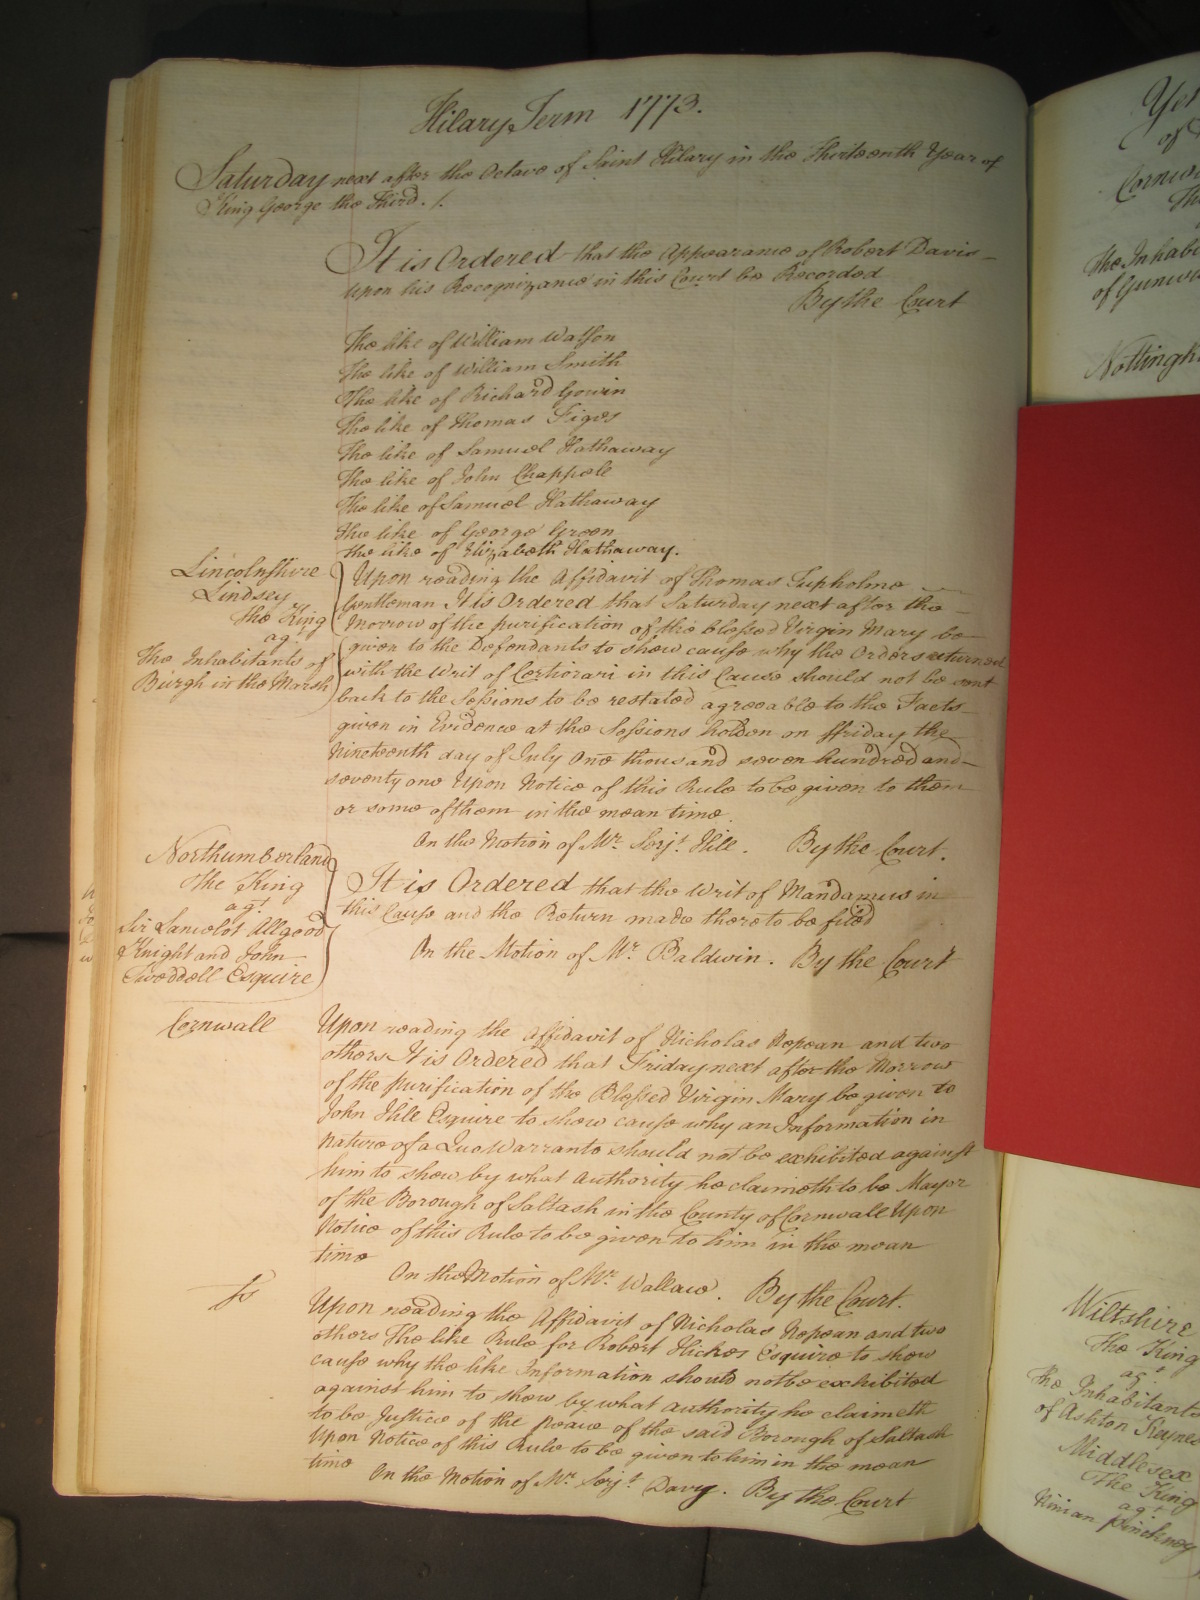 Hilary Term 1773.
Saturday next after the Octave of Saint Hilary in the Thirteenth Year of
King George the Third. /.
It is Ordered that the Appearance of Robert Davis
upon his Recognizance in this Court be Recorded
By the Court
The like of William Watson
The like of William Smith
The like of Richard Gowin
The like of Thomas Figes
The like of Samuel Hathaway
The like of John Chappell
The like of Samuel Hathaway
the like of George Green
the like of Elizabeth Hathaway.
Lincolnshire
Lindsey
the King
agt
The Inhabitants of
Burgh in the Marsh
Upon reading the Affidavit of Thomas Tupholme
Gentleman It is Ordered that Saturday next after the
Morrow of the purification of the blessed Virgin Mary be
given to the Defendants to show cause why the Orders returned
with the Writ of Certiorari in this Cause should not be sent
back to the Sessions to be restated agreeable to the Facts
given in Evidence at the Sessions holden on ffriday the
Nineteenth day of July One thousand seven hundred and
seventy one Upon Notice of this Rule to be given to them
or some of them in the mean time.
On the Motion of Mr. Serjt. Hill. By the Court.
Northumberland
The King
agt
Sir Lancelot Allgood
Knight and John
Tweddell Esquire
It is Ordered that the Writ of Mandamus in
this Cause and the Return made thereto be filed
On the Motion of Mr. Baldwin. By the Court
Cornwall
Upon reading the Affidavit of Nicholas Nepean and two
others It is Ordered that Friday next after the Morrow
of the Purification of the Blessed Virgin Mary be given to
John Hill Esquire to show cause why an Information in
Nature of a Quo Warranto should not be exhibited against
him to show by what Authority he claimeth to be Mayor
of the Borough of Saltash in the County of Cornwall Upon
Notice of this Rule to be given to him in the mean
time
On the Motion of Mr. Wallace. By the Court.
Ss
Upon reading the Affidavit of Nicholas Nepean and two
others The like Rule for Robert Hickes Esquire to show
cause why the like Information should not be exhibited
against him to show by what Authority he claimeth
to be Justice of the peace of the said Borough of Saltash
Upon Notice of this Rule to be given to him in the mean
time
On the Motion of Mr. Serjt. Davy. By the Court
Yes
of
Cornwa
Th
The Inhabi
of Gunwa
Nottingh
Wiltshire
The King
agt
The Inhabitants
of Ashton Keynes
Middlesex
The King
agt
Ninian Pinckney